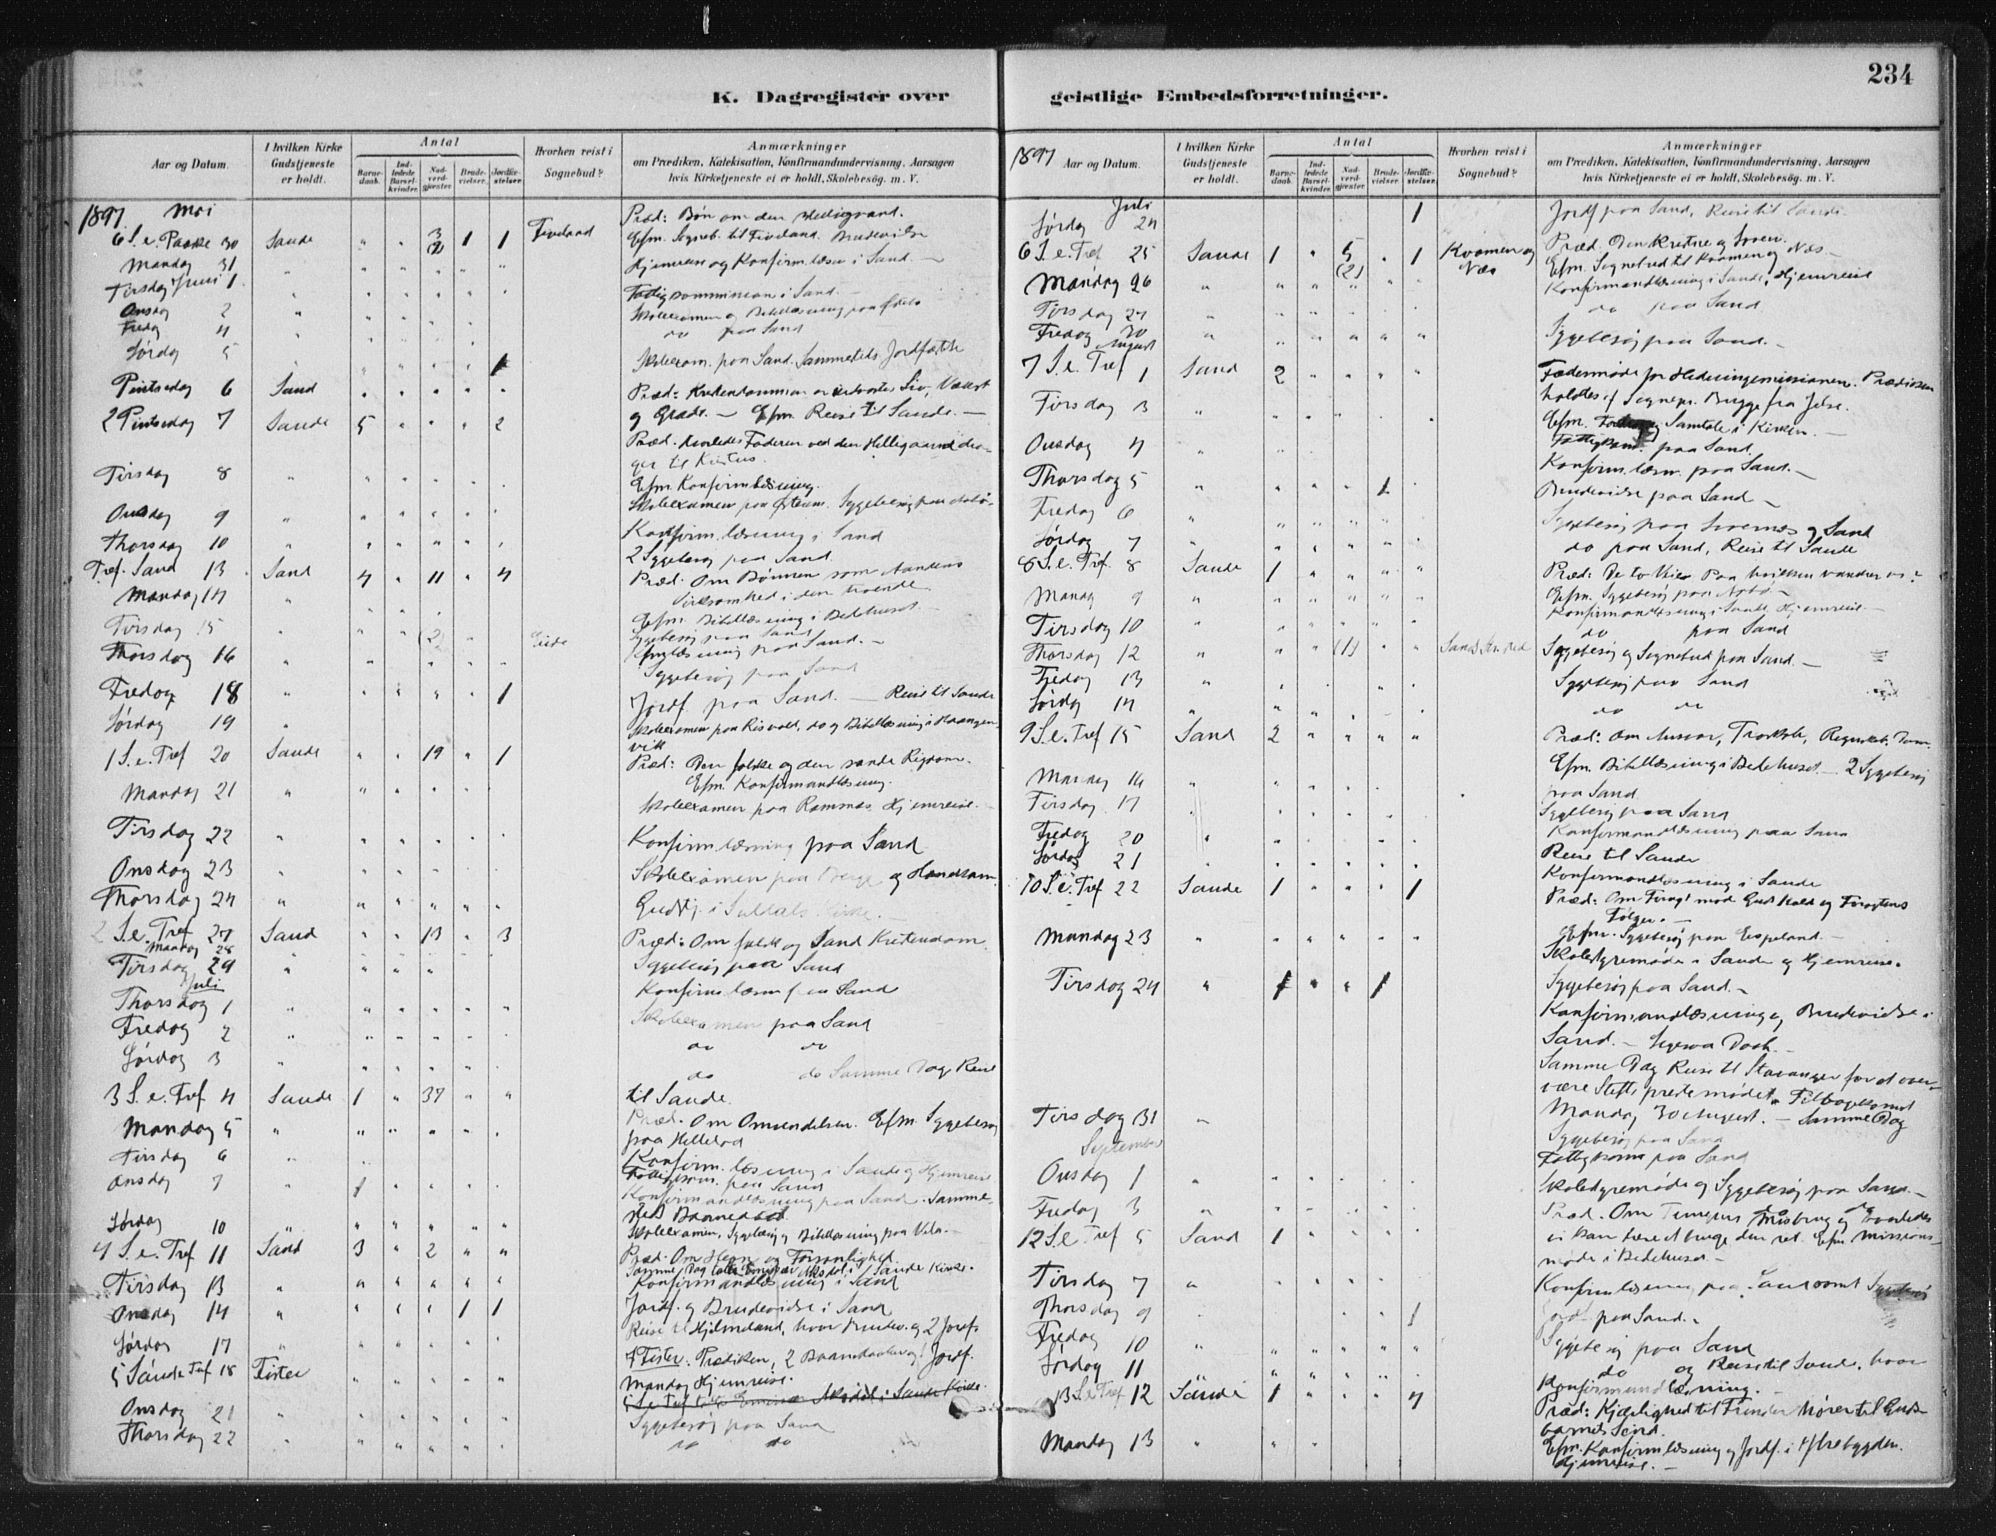 234
K. Dagregister over geistlige Embedsforretninger.
Aar og Datum.
I hvilken Kirke Gudstjeneste er holdt.
Antal
Barnedaab.
Indledede Barselkvinder.
Nadverdgjæster.
Brudevielser.
Jordfæstelser.
Hvorhen reist i Sognebud?
Anmærkninger
om Prædiken, Katekisation, Konfirmandundervisning, Aarsagen
hvis Kirketjeneste ei er holdt, Skolebesøg, m. V.
1897 Mai
6 S. e. Paaske 30 Sande " " 3 (2) 1 1 Præd: Bøn om den Helligaand.
Efm. Sogneb. til Brudevielse
Mandag 31 Hjemreise og Konfirm. læsn i Sand. —
Tirsdag Juni 1 Fattigkommission i Sand.
Onsdag 2
Fredag 4 do paa Sand
Lørdag 5 1 Skoleexam. paa Sand. Sammetids Jordfæstelse
Pintsedag 6 Sand Præd: Kristendommen er
og Glæde. — Efm. Reise til Sande. —
2 Pintsedag 7 Sande 5 " " " 2 Præd. hvorledes Faderen ved den Helligaand dra-
ger til Kristus.
Efm. Konfirmlæsning.
Tirsdag 8 Skoleexamen paa Sygebesøg paa
Onsdag 9 Konfirm. læsning i Sand
Thorsdag 10 2 Sygebesøg paa Sand
Tref. Sønd 13 Sand 4 " 11 " 4 Præd. Om Bønnen som Aandens
Virksomhed i den troende
Efm. Bibellæsning i Bedehuset.
Mandag 14 Sygebesøg paa Sand
Tirsdag 15 (2) læsning paa Sand. —
Thorsdag 16 Sygebesøg paa Sand
Fredag 18 1 Jordf. paa Sand. — Reise til Sande
Lørdag 19 Skoleexamen paa Risvold, do og Bibellæsning i
vik
1 S. e. Tref 20 Sande " " 19 " 1 Præd: Den falske og den sande Rigdom.
Efm. Konfirmandlæsning.
Mandag 21 Skoleexamen paa Ramnæs. Hjemreise.
Tirsdag 22 Konfirm. læsning paa Sand
Onsdag 23 Skoleexamen paa Berge og
Thorsdag 24 Gudstj. i Suldals Kirke. —
2 S. e. Tref 27 Sand " " 13 " 3 Præd: Om falsk og Sand Kristendom.
Mandag 28 Sygebesøg paa Sand
Tirsdag 29 Konfirm læsn paa Sand
Juli
Thorsdag 1 Skoleexamen paa Sand
Fredag 2 do do
Lørdag 3 do do Samme Dag Reise
til Sande.
3 S. e. Tref 4 Sande 1 " 37 " " Præd. Om Omvendelsen. Efm. Sygebesøg
paa
Mandag 5 Konfirm. læsning i Sande og Hjemreise
Tirsdag 6 paa Sand
Onsdag 7 1 Konfirmandlæsning paa Sand. Samme-
sted Barnedaab.
Lørdag 10 Skoleexamen, Sygebesøg og Bibellæsning paa
4 S. e. Tref 11 Sand 3 " 2 " " Præd. Om Hevn og Forsonlighed.
Samme Dag i Sande Kirke.
Tirsdag 13 Konfirmandlæsning i Sand
Onsdag 14 1 1 Jordf. og Brudevielse i Sand
Lørdag 17 Reise til Hjelmeland, hvor Brudev. og 2 Jordf.
5 Sønd e Tref 18 Fister I Fister. Prædiken, 2 Barnedaaber og 1 Jordf.
Mandag Hjemreise.
i Sande Kirke.
Onsdag 21 Sygebesøg paa Sand
Thorsdag 22 do do
1897
Aar og Datum.
I hvilken Kirke Gudstjeneste er holdt.
Antal
Barnedaab.
Indledede Barselkvinder.
Nadverdgjæster.
Brudevielser.
Jordfæstelser.
Hvorhen reist i Sognebud?
Anmærkninger
om Prædiken, Katekisation, Konfirmandundervisning, Aarsagen
hvis Kirketjeneste ei er holdt, Skolebesøg, m. V.
Juli
Lørdag 24 1 Jordf paa Sand, Reise til Sande
6 S. e. Tref 25 Sande 1 " 5 (2) " 1 Kvamen og Næs Præd. Den Kristne og Loven.
Efm. Sognebud til Kvamen og Næs —
Mandag 26 Konfirmandlæsning i Sande, Hjemreise
Tirsdag 27 do paa Sand
Fredag 30 Sygebesøg paa Sand. —
August
7 S. e. Tref 1 Sand 2 Prædiken
holdtes af Sognepr. Brygge fra Jelse.
Efm. Samtale i Kirken. —
Tirsdag 3 paa Sand
Onsdag 4 Konfirm. læsn. paa Sand. —
Thorsdag 5 1 Brudevielse paa Sand —
Fredag 6 Sygebesøg paa og Sand
Lørdag 7 do paa Sand, Reise til Sande
8 S. e. Tref. 8 Sande 1 Præd: De to Veie. Paa hvilken vandrer vi?
Efm. Sygebesøg paa
Mandag 9 Konfirmandlæsning i Sande, Hjemreise —
Tirsdag 10 do paa Sand
Thorsdag 12 (1) Sygebesøg og Sognebud paa Sand. —
Fredag 13 Sygebesøg paa Sand
Lørdag 14 do do
9 S. e. Tref 15 Sand 2 Præd: Om Ansvar, Troskab, Regnskab, Dom.
Efm. Bibellæsning i Bedehuset — 2 Sygebesøg
paa Sand
Mandag 16 Sygebesøg paa Sand
Tirsdag 17 Konfirmandlæsning paa Sand
Fredag 20 Reise til Sande
Lørdag 21 Konfirmandlæsning i Sande
10 S. e. Tref 22 Sande 1 " " " 1 Præd: Om Foragt mod Guds Kald og Foragtens
Følger. —
Efm. Sygebesøg paa Espeland. —
Mandag 23 Skolestyremøde i Sande og Hjemreise.
Tirsdag 24 1 " " 1 Sygebesøg paa Sand. —
Konfirmandlæsning og Brudevielse i
Sand. —
Samme Dag Reise til Stavanger for at over-
være Stiftsprestemødet. Tilbagekomst
Mandag 30 August. — Samme Dag
Sygebesøg paa Sand
Tirsdag 31 paa Sand
September
Onsdag 1 Skolestyremøde og Sygebesøg paa Sand. —
Fredag 3 Præd. Om Tungens Misbrug og hvorledes
12 S. e Tref 5 Sand 1 vi kan lære at bruge den ret. Efm. Missions-
møde i Bedehuset —
Tirsdag 7 Konfirmlæsning paa Sand samt Sygebesøg
Thorsdag 9 1 Jordf. paa Sand. —
Fredag 10 Sygebesøg paa Sand
Lørdag 11 do og Reise til Sande, hvor
Konfirmandlæsning.
13 S. e. Tref 12 Sande 1 " " " 4 Præd: Kjærlighed til Fiender hører til Guds-
barnets Sind.
Mandag 13 Efm. Konfirmlæsning og Jordf. i
Hjemreise. —